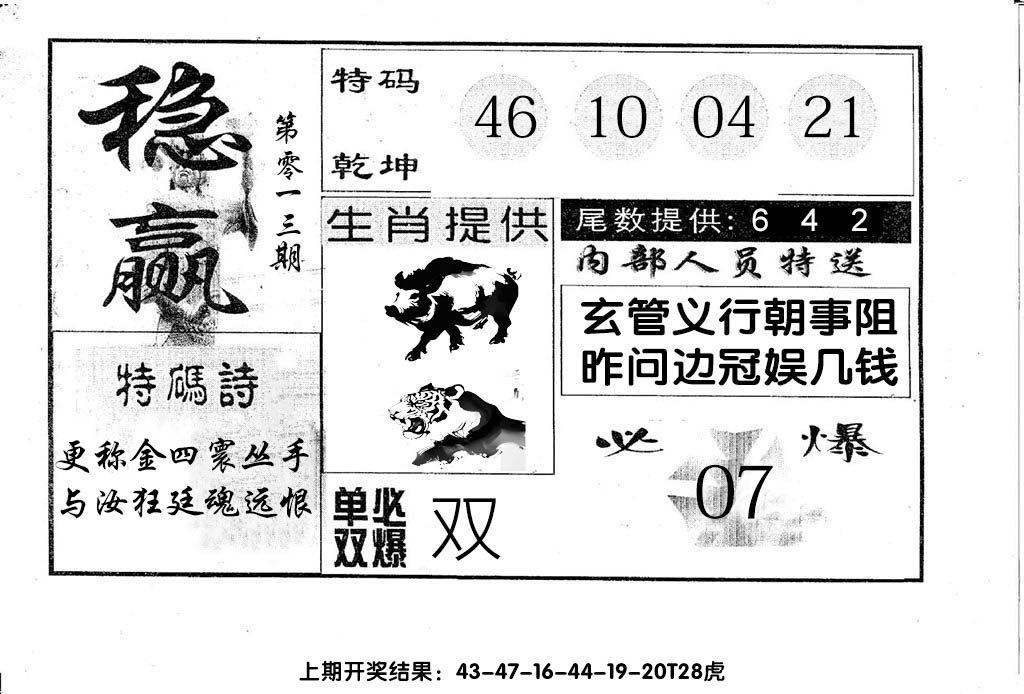 稳赢
第零一三期
特码诗
更称金四寰丛手
与汝狂廷魂远恨
特码
乾坤
46 10 04 21
生肖提供
尾数提供: 6 4 2
内部人员特送
玄管义行朝事阻
昨问边冠娱几钱
单双必爆 双
必爆
07
上期开奖结果：43-47-16-44-19-20T28虎